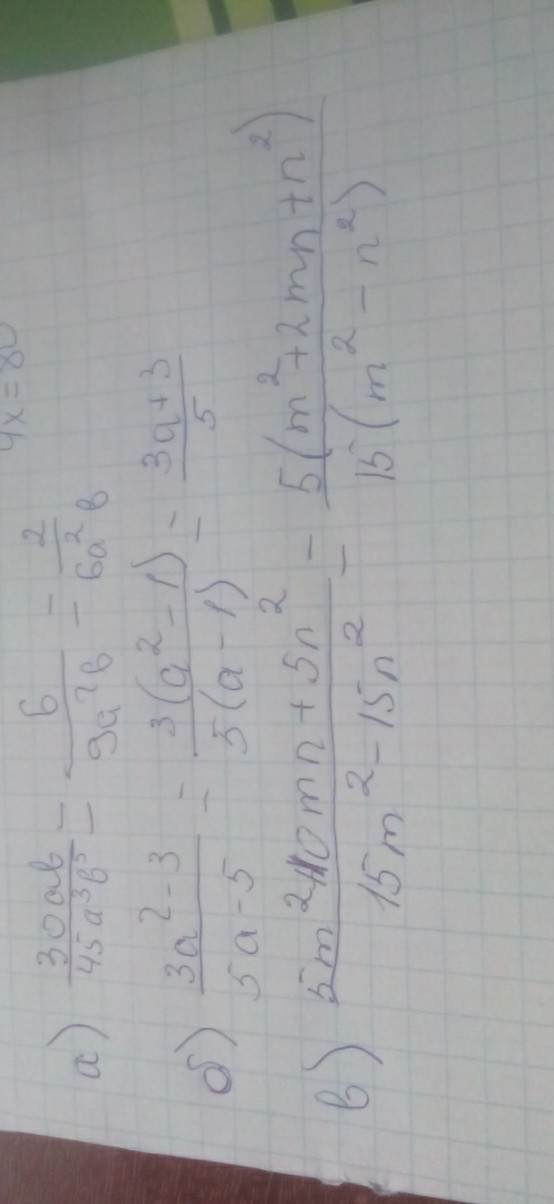 4x = 80
а) 30ab/45a³b⁵ = 6/9a²b = 2/6a²b
б) 3a² - 3/5a - 5 = 3(a² - 1)/5(a - 1) = 3a + 3/5
в) 5m² + 10mn + 5n²/15m² - 15n² = 5(m² + 2mn + n²)/15(m² - n²)